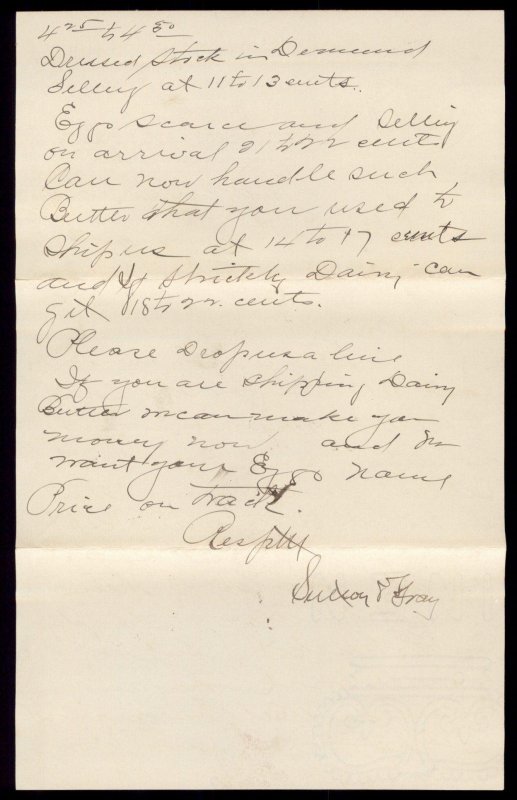 4 25 to 4 50
Dressed Stock in Demand
Selling at 11 to 13 cents.
Eggs scarce and selling
on arrival 21 to 22 cents
Can now handle such
Butter that you used to
ship us at 14 to 17 cents
and if Strictly Dairy can
get 18 to 22 cents.
Please Drop us a line
If you are shipping Dairy
Butter we can make you
money now and we
want your Eggs name
Price on track.
Respty
& Gray